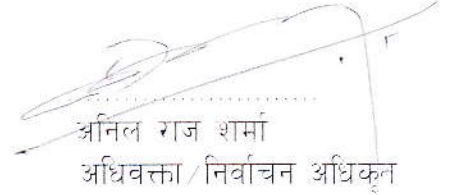 अनिल राज शर्मा
अधिवक्ता/निर्वाचन अधिकृत